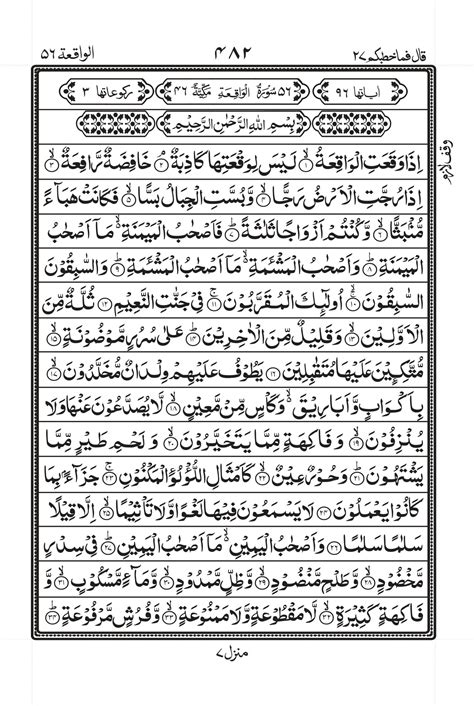 قال فماخطبكم ٢٧ ۴۸۲ الواقعة ۵۶
اٰیاتہا ۹۶ ۵۶ سُوْرَةُ الْوَاقِعَةِ مَكِّيَّةٌ ۴۶ رکوعاتہا ۳
بِسْمِ اللّٰهِ الرَّحْمٰنِ الرَّحِيْمِ
اِذَا وَقَعَتِ الْوَاقِعَةُ ۙ۱ لَيْسَ لِوَقْعَتِهَا كَاذِبَةٌ ۘ۲ خَافِضَةٌ رَّافِعَةٌ ۙ۳
وقف لازم
اِذَا رُجَّتِ الْاَرْضُ رَجًّا ۙ۴ وَّبُسَّتِ الْجِبَالُ بَسًّا ۙ۵ فَكَانَتْ هَبَآءً
مُّنْۢبَثًّا ۙ۶ وَّكُنْتُمْ اَزْوَاجًا ثَلٰثَةً ؕ۷ فَاَصْحٰبُ الْمَيْمَنَةِ ۙ۬ مَاۤ اَصْحٰبُ
الْمَيْمَنَةِ ؕ۸ وَاَصْحٰبُ الْمَشْـَٔمَةِ ۙ۬ مَاۤ اَصْحٰبُ الْمَشْـَٔمَةِ ؕ۹ وَالسّٰبِقُوْنَ
السّٰبِقُوْنَ ۚۙ۱۰ اُولٰٓئِكَ الْمُقَرَّبُوْنَ ۚ۱۱ فِيْ جَنّٰتِ النَّعِيْمِ ۱۲ ثُلَّةٌ مِّنَ
الْاَوَّلِيْنَ ۙ۱۳ وَقَلِيْلٌ مِّنَ الْاٰخِرِيْنَ ؕ۱۴ عَلٰى سُرُرٍ مَّوْضُوْنَةٍ ۙ۱۵
مُّتَّكِـِٕيْنَ عَلَيْهَا مُتَقٰبِلِيْنَ ۱۶ يَطُوْفُ عَلَيْهِمْ وِلْدَانٌ مُّخَلَّدُوْنَ ۙ۱۷
بِاَكْوَابٍ وَّاَبَارِيْقَ ۙ۬ وَكَاْسٍ مِّنْ مَّعِيْنٍ ۙ۱۸ لَّا يُصَدَّعُوْنَ عَنْهَا وَلَا
يُنْزِفُوْنَ ۙ۱۹ وَفَاكِهَةٍ مِّمَّا يَتَخَيَّرُوْنَ ۙ۲۰ وَلَحْمِ طَيْرٍ مِّمَّا
يَشْتَهُوْنَ ؕ۲۱ وَحُوْرٌ عِيْنٌ ۙ۲۲ كَاَمْثَالِ اللُّؤْلُؤِ الْمَكْنُوْنِ ۚ۲۳ جَزَآءًۢ بِمَا
كَانُوْا يَعْمَلُوْنَ ۲۴ لَا يَسْمَعُوْنَ فِيْهَا لَغْوًا وَّلَا تَاْثِيْمًا ۙ۲۵ اِلَّا قِيْلًا
سَلٰمًا سَلٰمًا ۲۶ وَاَصْحٰبُ الْيَمِيْنِ ۙ۬ مَاۤ اَصْحٰبُ الْيَمِيْنِ ؕ۲۷ فِيْ سِدْرٍ
مَّخْضُوْدٍ ۙ۲۸ وَّطَلْحٍ مَّنْضُوْدٍ ۙ۲۹ وَّظِلٍّ مَّمْدُوْدٍ ۙ۳۰ وَّمَآءٍ مَّسْكُوْبٍ ۙ۳۱ وَّ
فَاكِهَةٍ كَثِيْرَةٍ ۙ۳۲ لَّا مَقْطُوْعَةٍ وَّلَا مَمْنُوْعَةٍ ۙ۳۳ وَّفُرُشٍ مَّرْفُوْعَةٍ ؕ۳۴
منزل ۷